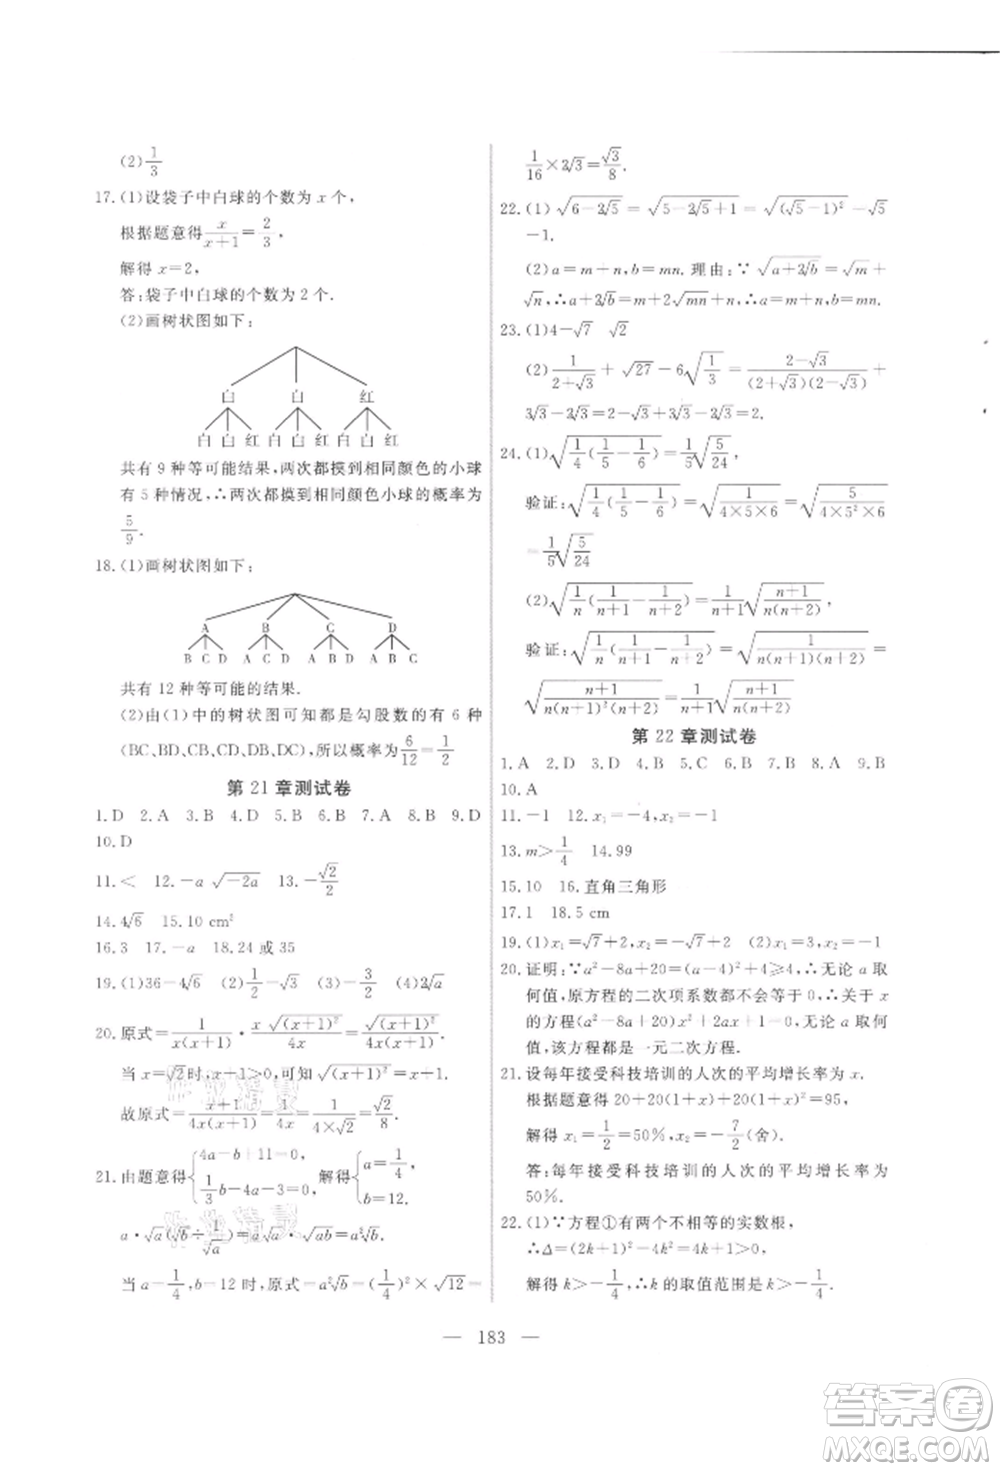 (2)1/3
17.(1)设袋子中白球的个数为 x 个,
根据题意得 x/(x+1)=2/3,
解得 x=2,
答:袋子中白球的个数为 2 个.
(2)画树状图如下:
白 白 红
白白红 白白红 白白红
共有 9 种等可能结果,两次都摸到相同颜色的小球
有 5 种情况,∴两次都摸到相同颜色小球的概率为
5/9.
18.(1)画树状图如下:
A B C D
B C D A C D A B D A B C
共有 12 种等可能的结果.
(2)由(1)中的树状图可知都是勾股数的有 6 种
(BC,BD,CB,CD,DB,DC),所以概率为 6/12=1/2
第 21 章测试卷
1.D 2.A 3.B 4.D 5.D 6.A 7.B 8.B 9.D
10.D
11.< 12.-a√(-2a) 13.-√2/2
14.4√6 15.10 cm²
16.3 17.-a 18.24 或 35
19.(1)36-4√6 (2)1/2 (3)-3/2 (4)2√a
20.原式=1/(x(x+1))·x√((x+1)²)/(4x)=√((x+1)²)/(4x(x+1)),
当 x=√2>0,可知√((x+1)²)=x+1,
故原式=(x+1)/(4x(x+1))=1/(4x)=1/(4√2)=√2/8.
21.由题意得{4a-b+11=0, 1/3 b-4a-3=0,解得{a=1/4, b=12.
a·√a(√b÷1/√a)=a·√a(√b·√a)=a²√b.
当 a=1/4,b=12 时,原式=a²√b=(1/4)²×√12=
1/16×2√3=√3/8.
22.(1)√(6-2√5)=√(5-2√5+1)=√((√5-1)²)=√5
-1.
(2)a=m+n,b=mn.理由:∵√(a+2√b)=√m+
√n,∴a+2√b=m+2√mn+n,∴a=m+n,b=mn.
23.(1)4-√7 √2
(2)1/(2+√3)+√27-6√(1/3)=(2-√3)/((2+√3)(2-√3))+
3√3-2√3=2-√3+3√3-2√3=2.
24.(1)√(1/4(1/5-1/6))=1/5√(5/24)
验证:√(1/4(1/5-1/6))=√(1/(4×5×6))=√(5/(4×5²×6))
=1/5√(5/24)
(2)√(1/n(1/(n+1)-1/(n+2)))=1/(n+1)√((n+1)/(n(n+2))),
验证:√(1/n(1/(n+1)-1/(n+2)))=√(1/(n(n+1)(n+2)))=
√((n+1)/(n(n+1)²(n+2)))=1/(n+1)√((n+1)/(n(n+2)))
第 22 章测试卷
1.A 2.D 3.D 4.A 5.C 6.B 7.B 8.A 9.B
10.A
11.-1 12.x₁=-4,x₂=-1
13.m>1/4 14.99
15.10 16.直角三角形
17.1 18.5 cm
19.(1)x₁=√7+2,x₂=-√7+2 (2)x₁=x₂=-1
20.证明:∵a²-8a+20=(a-4)²+4≥4,∴无论 a 取
何值,原方程的二次项系数都不会等于 0,∴关于 x
的方程(a²-8a+20)x²+2ax+1=0,无论 a 取何
值,该方程都是一元二次方程.
21.设每年接受科技培训的人次的平均增长率为 x.
根据题意得 20+20(1+x)+20(1+x)²=95,
解得 x₁=1/2=50%,x₂=-7/2(舍).
答:每年接受科技培训的人次的平均增长率为
50%.
22.(1)∵方程①有两个不相等的实数根,
∴Δ=(2k+1)²-4k²=4k+1>0,
解得 k>-1/4,∴k 的取值范围是 k>-1/4
— 183 —
答案卷
MXQE.COM